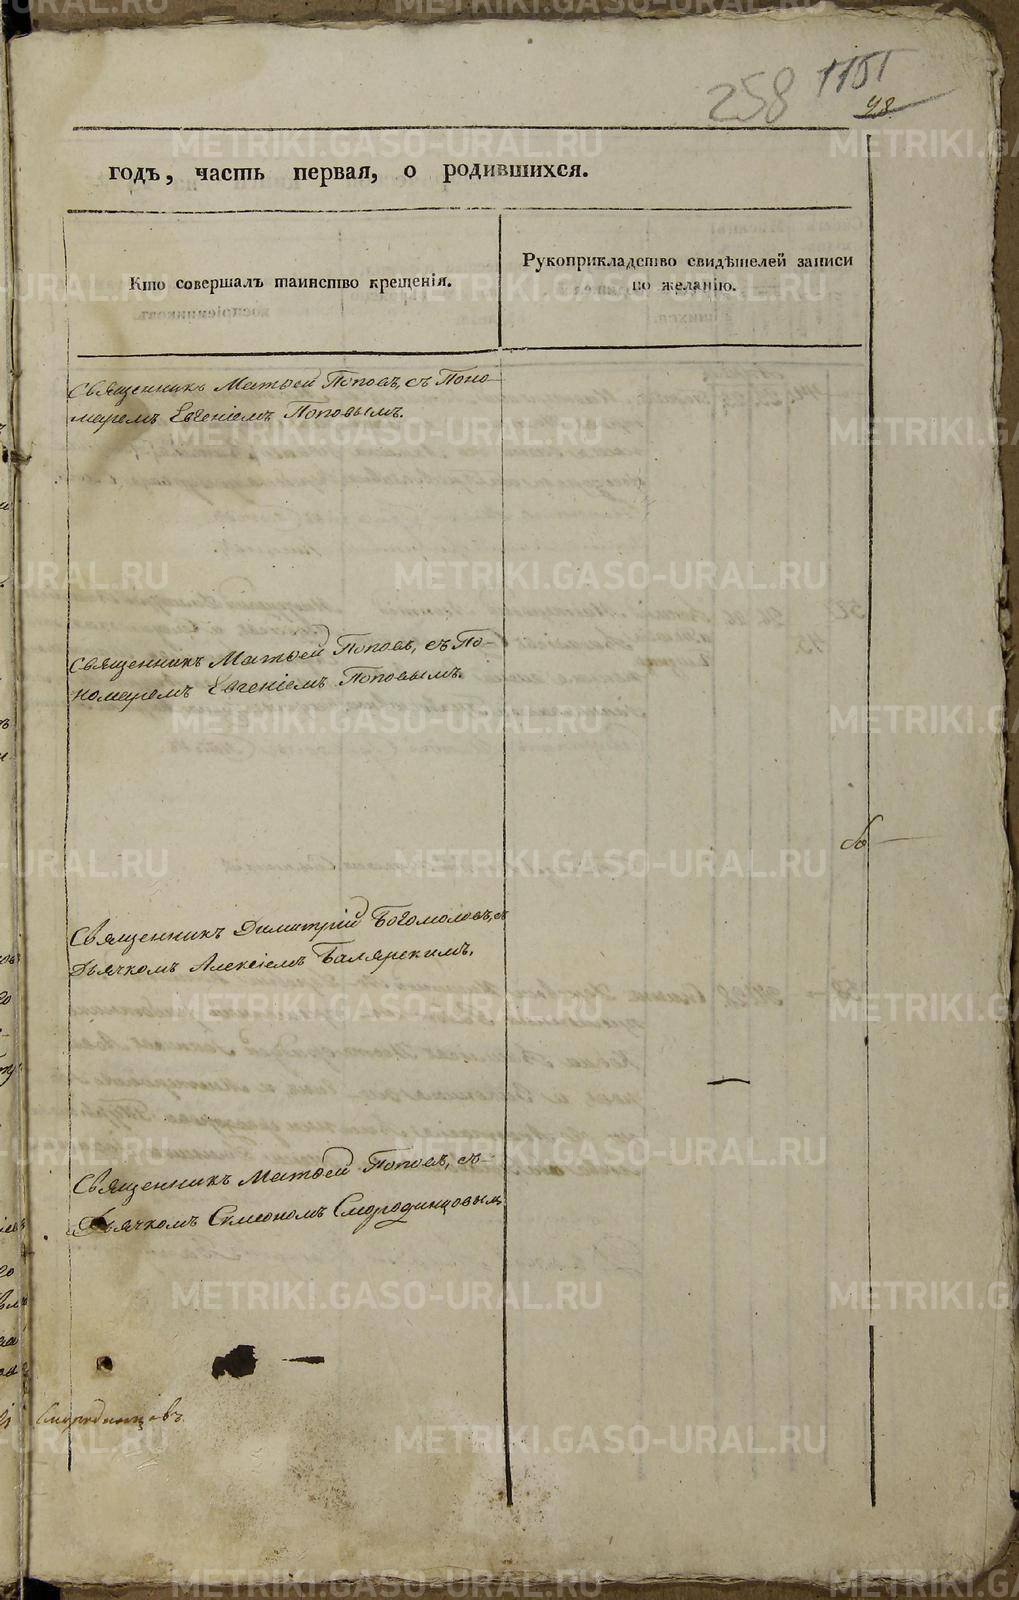 258 1151
98
годъ, часть первая, о родившихся.
Кто совершалъ таинство крещенія.
Рукоприкладство свидѣтелей записи
по желанію.
Священникъ Матѳей Поповъ, съ Поно-
маремъ Евгеніемъ Поповымъ.
Священникъ Матѳей Поповъ, съ По-
номаремъ Евгеніемъ Поповымъ.
Священникъ Димитрій Богомоловъ, съ
Дьячкомъ Алексіемъ Балярскимъ.
Священникъ Матѳей Поповъ, съ
Дьячкомъ Симеономъ Смородинцовымъ
Смородинцовъ
METRIKI.GASO-URAL.RU